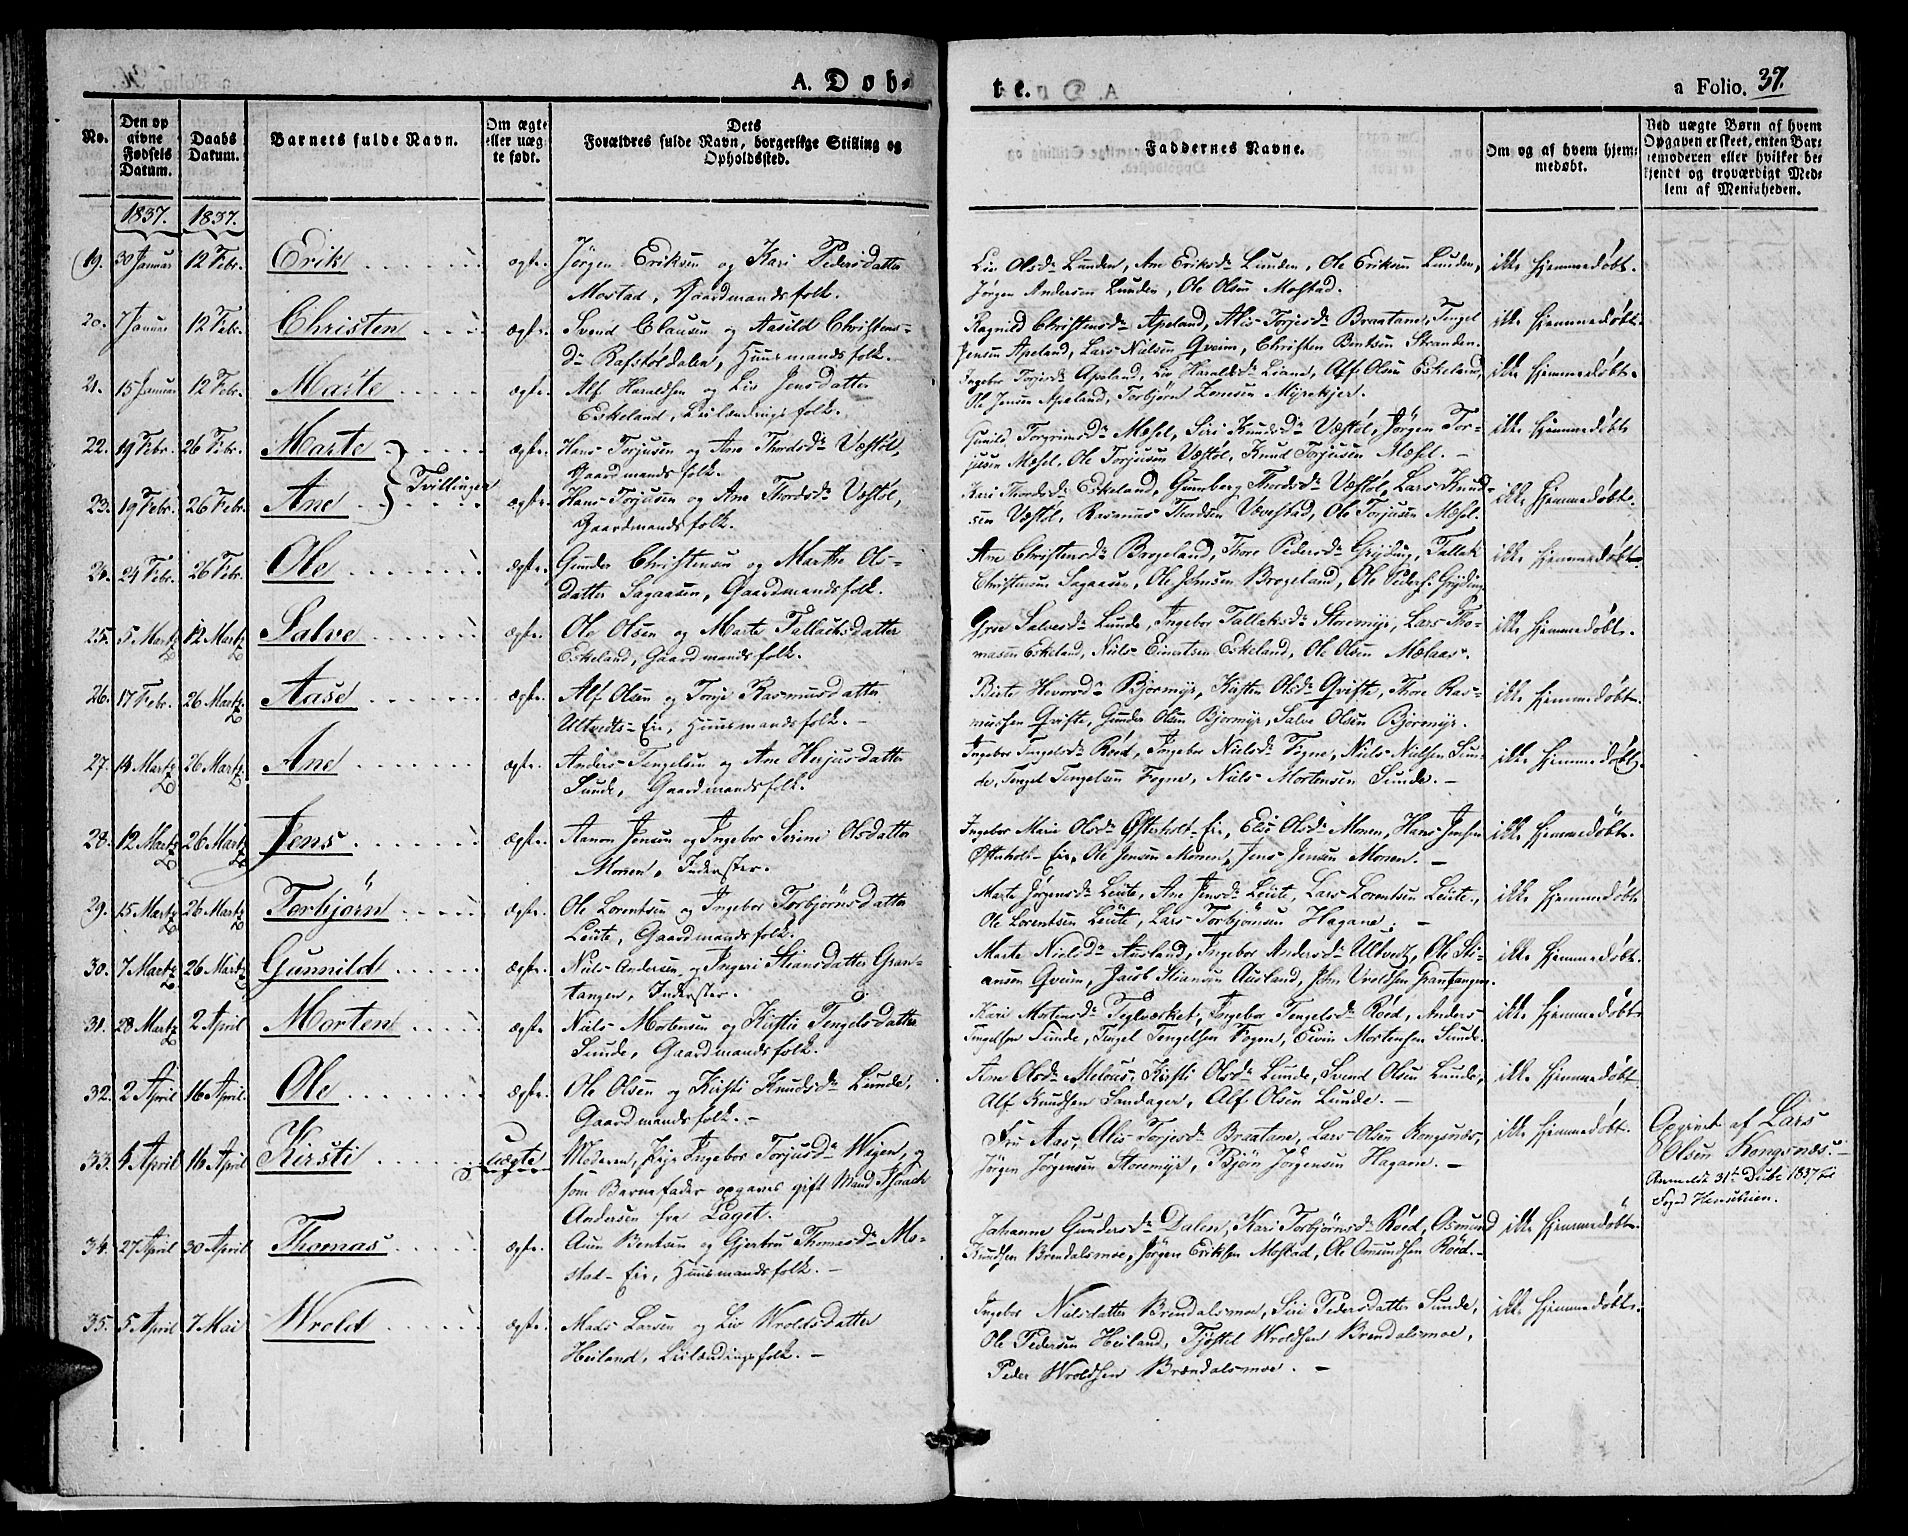 A. Døb-
te.
a Folio. 37.
No.
Den op
givne
Fødsels
Datum.
Daabs
Datum.
Barnets fulde Navn.
Om ægte
eller uæg
te født.
Dets
Forældres fulde Navn, borgerlige Stilling og
Opholdssted.
Faddernes Navne.
Om og af hvem hjem-
medøbt.
Ved uægte Børn af hvem
Opgaven er skeet, enten Bar-
nemoderen eller hvilket be
kjendt og troværdigt Med-
lem af Menigheden.
1837. 1837.
19. 30 Januar 12 Febr. Erik ægte. Jørgen Eriksen og Kari Pedersdatter
Mostad, Gaardmandsfolk.
Liv Olsdr Lunden, Ane Eriksdr Lunden, Ole Eriksen Lunden,
Jørgen Andersen Lunden, Ole Olsen Mostad.
ikke hjemmedøbt.
20. 7 Januar 12 Febr. Christen ægte. Svend Clausen og Aasild Christens-
dr Rafstøldalen, Huusmandsfolk.
Ragnild Christensdr Apeland, Alis Torjesdr Braatane, Tengel
Jensen Apeland, Lars Nielsen Qveim, Christen Bentsen Stranden.
ikke hjemmedøbt.
21. 15 Januar 12 Febr. Marte ægte. Alf Haraldsen og Liv Jensdatter
Eskeland, Leilændingsfolk.
Ingebor Torjesdr Apeland, Liv Haraldsdr Leiane, Alf Olsen Eskeland,
Ole Jensen Apeland, Torbjørn Myrekjer.
ikke hjemmedøbt.
22. 19 Febr. 26 Febr. Marte ægte. Hans Torjusen og Ane Thordsdr Væstøl,
Gaardmandsfolk.
Gunild Torgrimsdr Mæsel, Siri Knudsdr Væstøl, Jørgen Tor-
jusen Mæsel, Ole Torjusen Væstøl, Knud Torjusen Mæsel.
ikke hjemmedøbt
Tvillinger
23. 19 Febr. 26 Febr. Ane ægte. Hans Torjusen og Ane Thordsdr Væstøl,
Gaardmandsfolk.
Kari Thordsdr Eskeland, Gunberg Thordsdr Væstøl, Lars Knud-
sen Væstøl, Rasmus Thordsen Ufvestad, Ole Torjusen Mæsel.
ikke hjemmedøbt.
24. 24 Febr. 26 Febr. Ole ægte. Gunder Christensen og Marthe Ols-
datter Sagaasen, Gaardmandsfolk.
Ane Christensdr Brogeland, Thore Pedersdr Gryding, Tallak
Christensen Sagaasen, Ole Jensen Brogeland, Ole Peders. Gryding
ikke hjemmedøbt.
25. 5 Martz 12 Martz Salve ægte. Ole Olsen og Marte Tallaksdatter
Eskeland, Gaardmandsfolk.
Groe Salvesdr Lunde, Ingebor Tallaksdr Storemyr, Lars Tho-
masen Eskeland, Niels Einertsen Eskeland, Ole Olsen Mælaas.
ikke hjemmedøbt.
26. 17 Febr. 26 Martz Aase ægte. Alf Olsen og Tone Rasmusdatter
Ultvedts-Eie, Huusmandsfolk.
Birte Hevordr Bjormyr, Kisten Olsdr Qviste, Thore Ras-
mussen Qviste, Gunder Olsen Bjormyr, Salve Olsen Bjormyr.
ikke hjemmedøbt
27. 14 Martz 26 Martz Ane ægte. Anders Tengelsen og Ane Herjusdatter
Sunde, Gaardmandsfolk.
Ingebor Tengelsdr Røed, Ingebor Nielsdr Fogne, Niels Nielsen Sun-
de, Tengel Tengelsen Fogne, Niels Mortensen Sunde.
ikke hjemmedøbt.
28. 12 Martz 26 Martz Jens ægte. Aanon Jensen og Ingebor Serine Olsdatter
Monen, Inderster.
Ingebor Marie Olsdr Østerholt-Eie, Elis Olsdr Monen, Hans Jensen
Østerholt-Eie, Ole Jensen Monen, Jens Jensen Monen.
ikke hjemmedøbt.
29. 15 Martz 26 Martz Torbjørn ægte. Ole Lorentsen og Ingebor Torbjørnsdatter
Leüte, Gaardmandsfolk.
Marte Jørgensdr Leüte, Ane Jensdr Leüte, Lars Lorentsen Leüte,
Ole Lorentsen Leüte, Lars Torbjørnsen Hagane.
ikke hjemmedøbt
30. 7 Martz 26 Martz Gunnild ægte. Niels Andersen og Ingeri Stiansdatter Gran-
tangen, Inderster.
Marte Nielsdr Ausland, Ingebor Andersdr Ultvedt, Ole Sti-
ansen Qveim, Jacob Stiansen Ausland, John Uroldsen Grantangen.
ikke hjemmedøbt.
31. 28 Martz 2 April Morten ægte Niels Mortensen og Kirsti Tengelsdatter
Sunde, Gaardmandsfolk.
Kari Mortensdr Teglværket, Ingebor Tengelsdr Røed, Anders
Tengelsen Sunde, Tengel Tengelsen Fogen, Even Mortensen Sunde.
ikke hjemmedøbt
32. 2 April 16 April. Ole ægte. Ole Olsen og Kirsti Knudsdr Lunde,
Gaardmandsfolk.
Ane Olsdr Meløes, Kirsti Olsdr Lunde, Svend Olsen Lunde,
Alf Knudsen Sandager, Alf Olsen Lunde.
ikke hjemmedøbt
33. 4 April 16 April Kirsti uægte Moderen, Pige Ingebor Torjusdr Wigen, og
som Barnefader opgaves gift Mand Isaach
Andersen fra Laget.
Fru Aas, Alis Torjesdr Braatane, Lars Olsen Kongsnæs,
Jørgen Jørgensen Storemyr, Bjøn Jørgensen Hagane.
ikke hjemmedøbt.
Opgivet af Lars
Olsen Kongsnæs.
Anmeldt 31te Decbr 1837 for
Fogd
34. 27 April 30 April Thomas ægte. Aun Bentsen og Gjertru Thomesdr Mo-
stad-Eie, Huusmandsfolk.
Johanne Gundersdr Dalen, Kari Torbjørnsdr Røed, Osmund
Knudsen Brendalsmoe, Jørgen Eriksen Mostad, Ole Osmundsen Røed.
ikke hjemmedøbt.
35. 5 April 7 Mai Wrold ægte. Mads Larsen og Liv Wroldsdatter
Heiland, Leilændingsfolk.
Ingebor Nielsdatter Brendalsmoe, Siri Pedersdatter Sunde,
Ole Pedersen Heiland, Tjøstel Wroldsen Brendalsmoe,
Peder Wroldsen Brændalsmoe.
ikke hjemmedøbt.